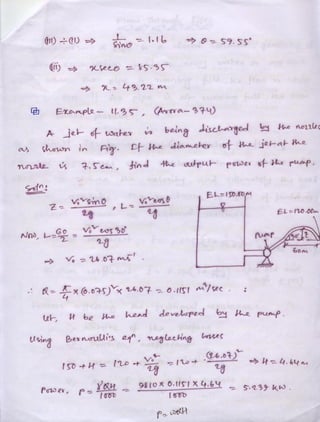 (III) ÷ (II) ⇒ 1/sinθ = 1.16 ⇒ θ = 59.55°
(ii) ⇒ x secθ = 85.35
⇒ x = 43.22 m
Example - 11.35, (Arora - 374)
A jet of water is being discharged by the nozzle
as shown in Fig. If the diameter of the jet at the
nozzle is 7.5 cm, find the output power of the pump.
Soln:
EL = 150.00m
Z = Vi² sin²θ / 2g , L = Vi² cosθ / 2g
EL = 120.00m
Now, L = 60/2 = Vi² cos 30° / 2g
Pump
30°
60m
⇒ Vi = 26.07 ms⁻¹
∴ Q = π/4 × (0.075)² × 26.07 = 0.1151 m³/sec.
Let, H be the head developed by the pump.
Using Bernoulli's eqn, neglecting losses
150 + H = 120 + Vi²/2g = 120 + (26.07)²/2g ⇒ H = 4.64 m
Power, P = γQH/1000 = 9810 × 0.1151 × 4.64 / 1000 = 5.239 kW.
P = γQH